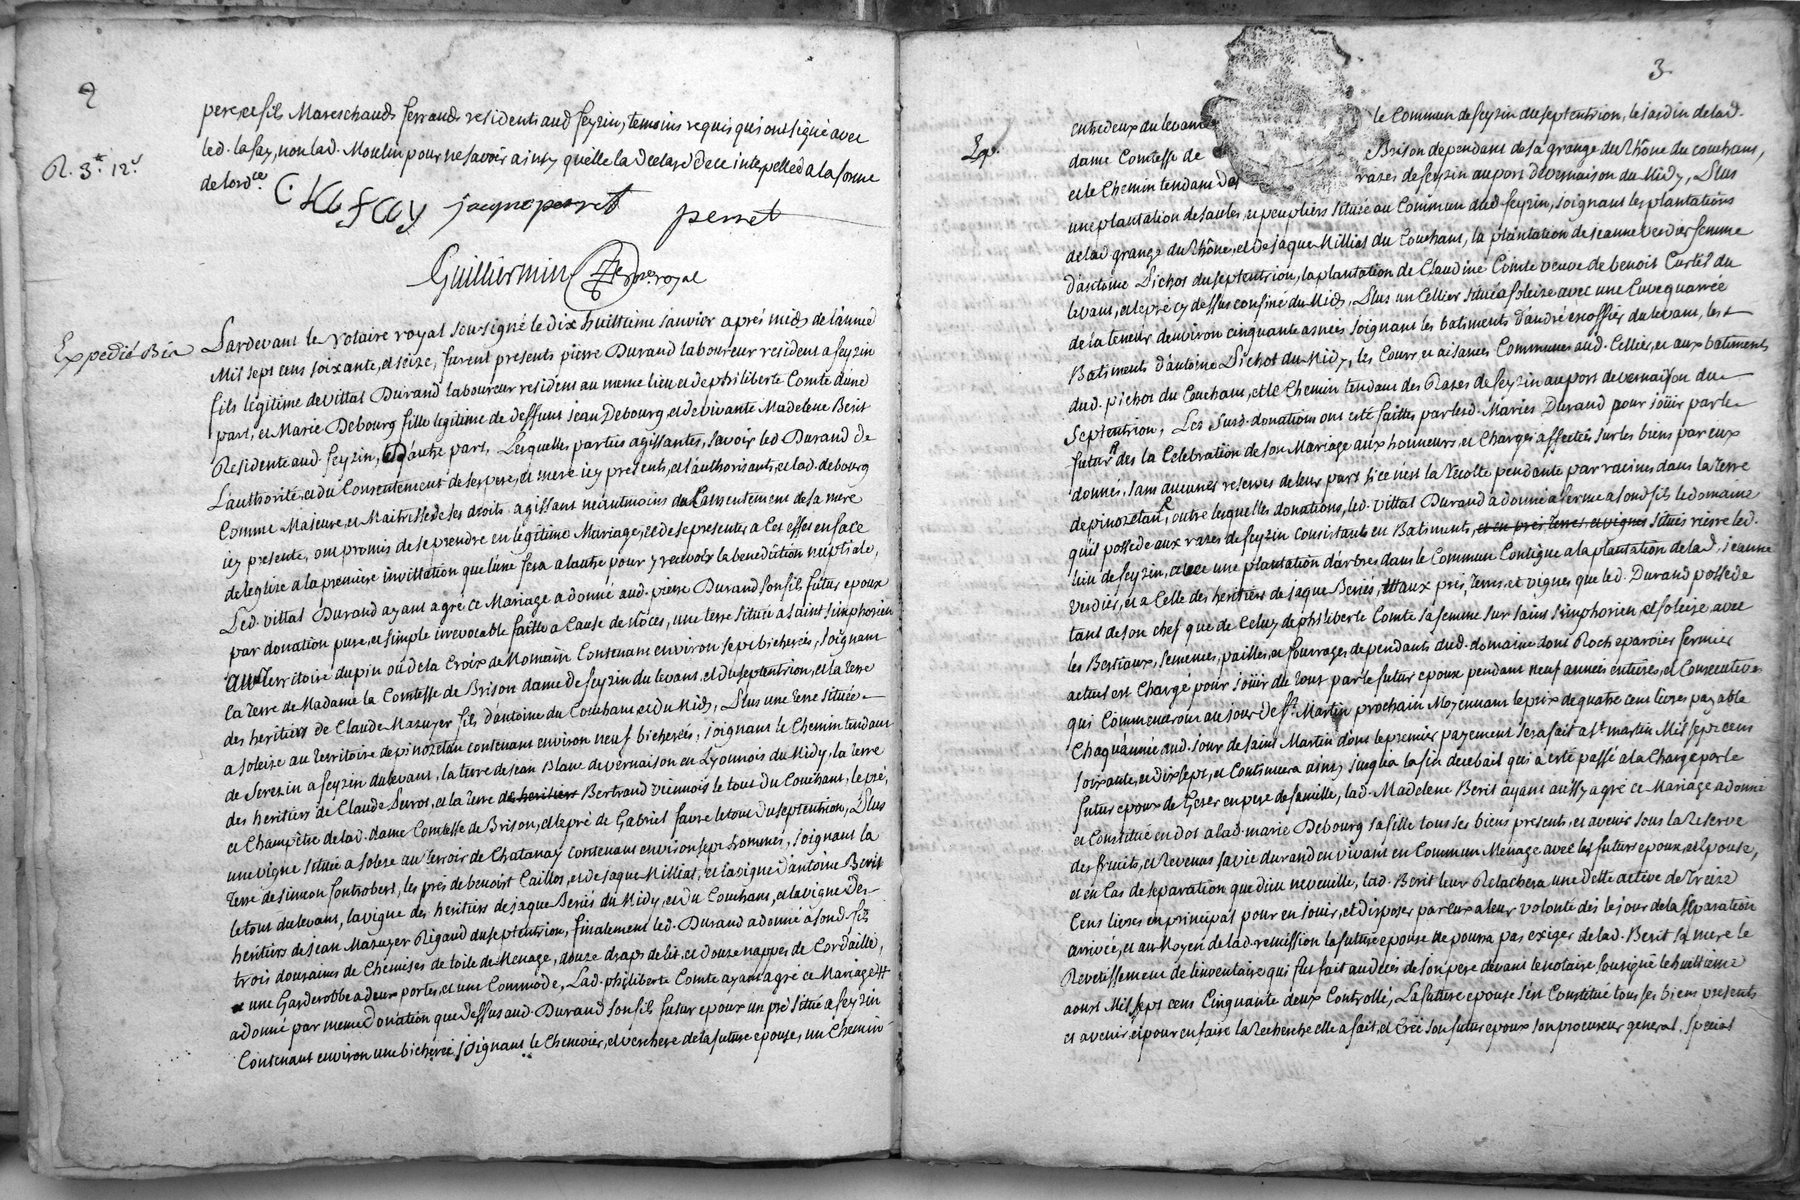 2
pere et fils Mareschauds ferrands residents aud. feyzin, temoins requis qui ont signé avec
led. lafay, non lad. Moulin pour ne savoir ainsy quelle la declaré de ce interpellée a la forme
de lord.ce
R. 3.# 12.s
C: lafay jacque perret perret
Guilliermin no.re royal
Expedié Bia
Pardevant le Notaire royal soussigné le dix huittieme janvier aprés midy de l'année
Mil sept cens soixante, et seize, furent presents pierre Durand laboureur resident a feyzin
fils legitime de vittal Durand laboureur resident au meme lieu et de philiberte Comte d'une
part, et Marie Debourg fille legitime de deffunt jean Debourg, et de vivante Madelene Berit
Residente aud. feyzin, d'autre part, Lesquelles parties agissantes, savoir led. Durand de
L'authorité, et du Consentement de ses pere, et mere icy presents, et l'authorisants, et lad. debourg
Comme Majeure, et Maitresse de ses droits agissant néantmoins du Consentement de sa mere
icy presente, ont promis de se prendre en legitime Mariage, et de se presenter a Cet effet en face
de leglise a la premiere invittation que l'une fera a lautre pour y recevoir la benediction nuptiale,
Led. vittal Durand ayant agré ce Mariage a donné aud. pierre Durand son fils futur epoux
par donation pure, et simple irrevocable faitte a Cause de nôces, une terre située a saint simphorien
au territoire du pin ou de la Croix de Contenant environ sept bicherées, joignant
la terre de Madame la Comtesse de Brison dame de feyzin du levant, et du septentrion, et la terre
des heritiers de Claude Mazuyer fils d'antoine du Couchant et du Midy, Plus une terre située
a soleize au territoire de pinozetan contenant environ neuf bicherées, joignant le Chemin tendant
de Serezin a feyzin du levant, la terre de jean Blanc de vernaison en Lyonnois du Midy, la terre
des heritiers de Claude et la terre de heritiers Bertrand viennois le tout du Couchant, le pré,
et Champêtre de lad. dame Comtesse de Brison, et le pré de Gabriel favre le tout du septentrion, Plus
une vigne située a soleze au terroir de Chatanay contenant environ sept hommes, joignant la
terre de simeon les prés de benoist Caillot, et de jaque Milliat, et la vigne d'antoine Berit
le tout du levant, la vigne des heritiers de jaque Beriés du Midy, et du Couchant, et la vigne des
heritiers de jean Mazuyer Rigaud du septentrion, finalement led. Durand a donné a sond. fils
trois douzaines de Chemises de toile de Menage, douze draps de lit, et douze nappes de Cordaille,
et une Garderobbe a deux portes, et une Commode, Lad. philiberte Comte ayant agré ce Mariage
a donné par meme donation que dessus aud. Durand son fils futur epoux un pré situé a feyzin
Contenant environ une bicherée joignant le Chenevier, et verchere de la future epouse, un Chemin
3
Ex.
entredeux du levant le Commun de feyzin du septentrion, le jardin de lad.
dame Comtesse de Brison dependant de sa grange du Rhône du couchant,
et le Chemin tendant des razes de feyzin au port de vernaison du Midy, Plus
une plantation de saules, et peupliers située au Commun dud. feyzin, joignant les plantations
de lad. grange du Rhône, et de jaque Milliat du Couchant, la plantation de jeanne verdier femme
d'antoine Pichot du septentrion, la plantation de Claudine Comte veuve de benoit Curtil du
levant, et le pré cy dessus confiné du Midy, Plus un Cellier situé a soleize avec une Cuve quarrée
de la teneur de environ cinquante asnées joignant les batiments d'andré du levant, les
Batiments d'antoine Pichot du Midy, les Cours, et aisances Communes aud. Cellier, et aux batiments
dud. pichot du Couchant, et le Chemin tendant des Razes de feyzin au port de vernaison du
Septentrion, Les susd. donations ont esté faittes par lesd. Mariés Durand pour jouir par le
futur dès la Celebration de son Mariage aux honneurs, et Charges affectées sur les biens par eux
donnés, sans aucunes reserves de leur part si ce n'est la Recolte pendante par racines dans la terre
de pinozetan, outre lesquelles donations, led. vittal Durand a donné a ferme a sond. fils le domaine
qu'il possede aux razes de feyzin consistant en Batiments, et en prés, terres, et vignes situés riere led.
lieu de feyzin, avec une plantation d'arbres dans le Commun Contigue a la plantation de lad. jeanne
verdier, et a Celle des heritiers de jaque Beriés, et aux prés, terres, et vignes que led. Durand possede
tant de son chef que de Celuy de philiberte Comte sa femme sur saint simphorien, et soleize, avec
les Bestiaux, semences, pailles, et fourrages dependants dud. domaine dont Roch eparvier fermier
actuel est Chargé pour jouir du tout par le futur epoux pendant neuf années entieres, et Consecutives
qui Commenceront au jour de st. Martin prochain Moyennant le prix de quatre cent livres payable
Chaque année aud. jour de saint Martin dont le premier payement sera fait a st. martin Mil sept cens
soixante, et dix sept, et Continuera ainsy jusqu'a la fin de ce bail qui a eté passé a la Charge par le
futur epoux de Gerer en pere de famille, lad. Madelene Berit ayant aussy agré ce Mariage a donné
et Constitué en dot a lad. marie Debourg sa fille tous ses biens presents, et avenir sous la Reserve
des fruits, et Revenus sa vie durand en vivant en Commun Menage avec les futurs epoux, et epouse,
et en Cas de separation que dieu ne veuille, lad. Berit leur Relachera une dette active de treize
Cens livres en principal pour en jouir, et disposer par eux a leur volonté dès le jour de la separation
arrivée, et au Moyen de lad. remission la future epouse ne pourra pas exiger de lad. Berit sa mere le
Revetissement de l'inventaire qui fut fait au decés de son pere devant le notaire soussigné le huittieme
aoust Mil sept cens Cinquante deux Controllé, La future epouse s'est Constitué tous ses biens presents
et avenir et pour en faire la Recherche elle a fait, et Créé son futur epoux son procureur general, special